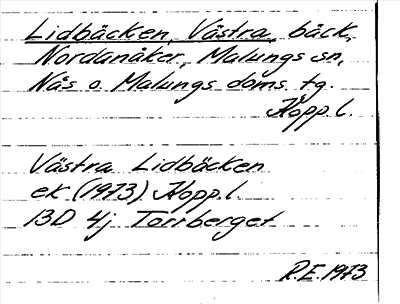 Lidbäcken, Västra, bäck,
Nordanåker, Malungs sn,
Nås o. Malungs doms. tg.
Kopp.l.
Västra Lidbäcken
ek (1973) Kopp.l.
13D 4j Torrberget
R.E. 1973